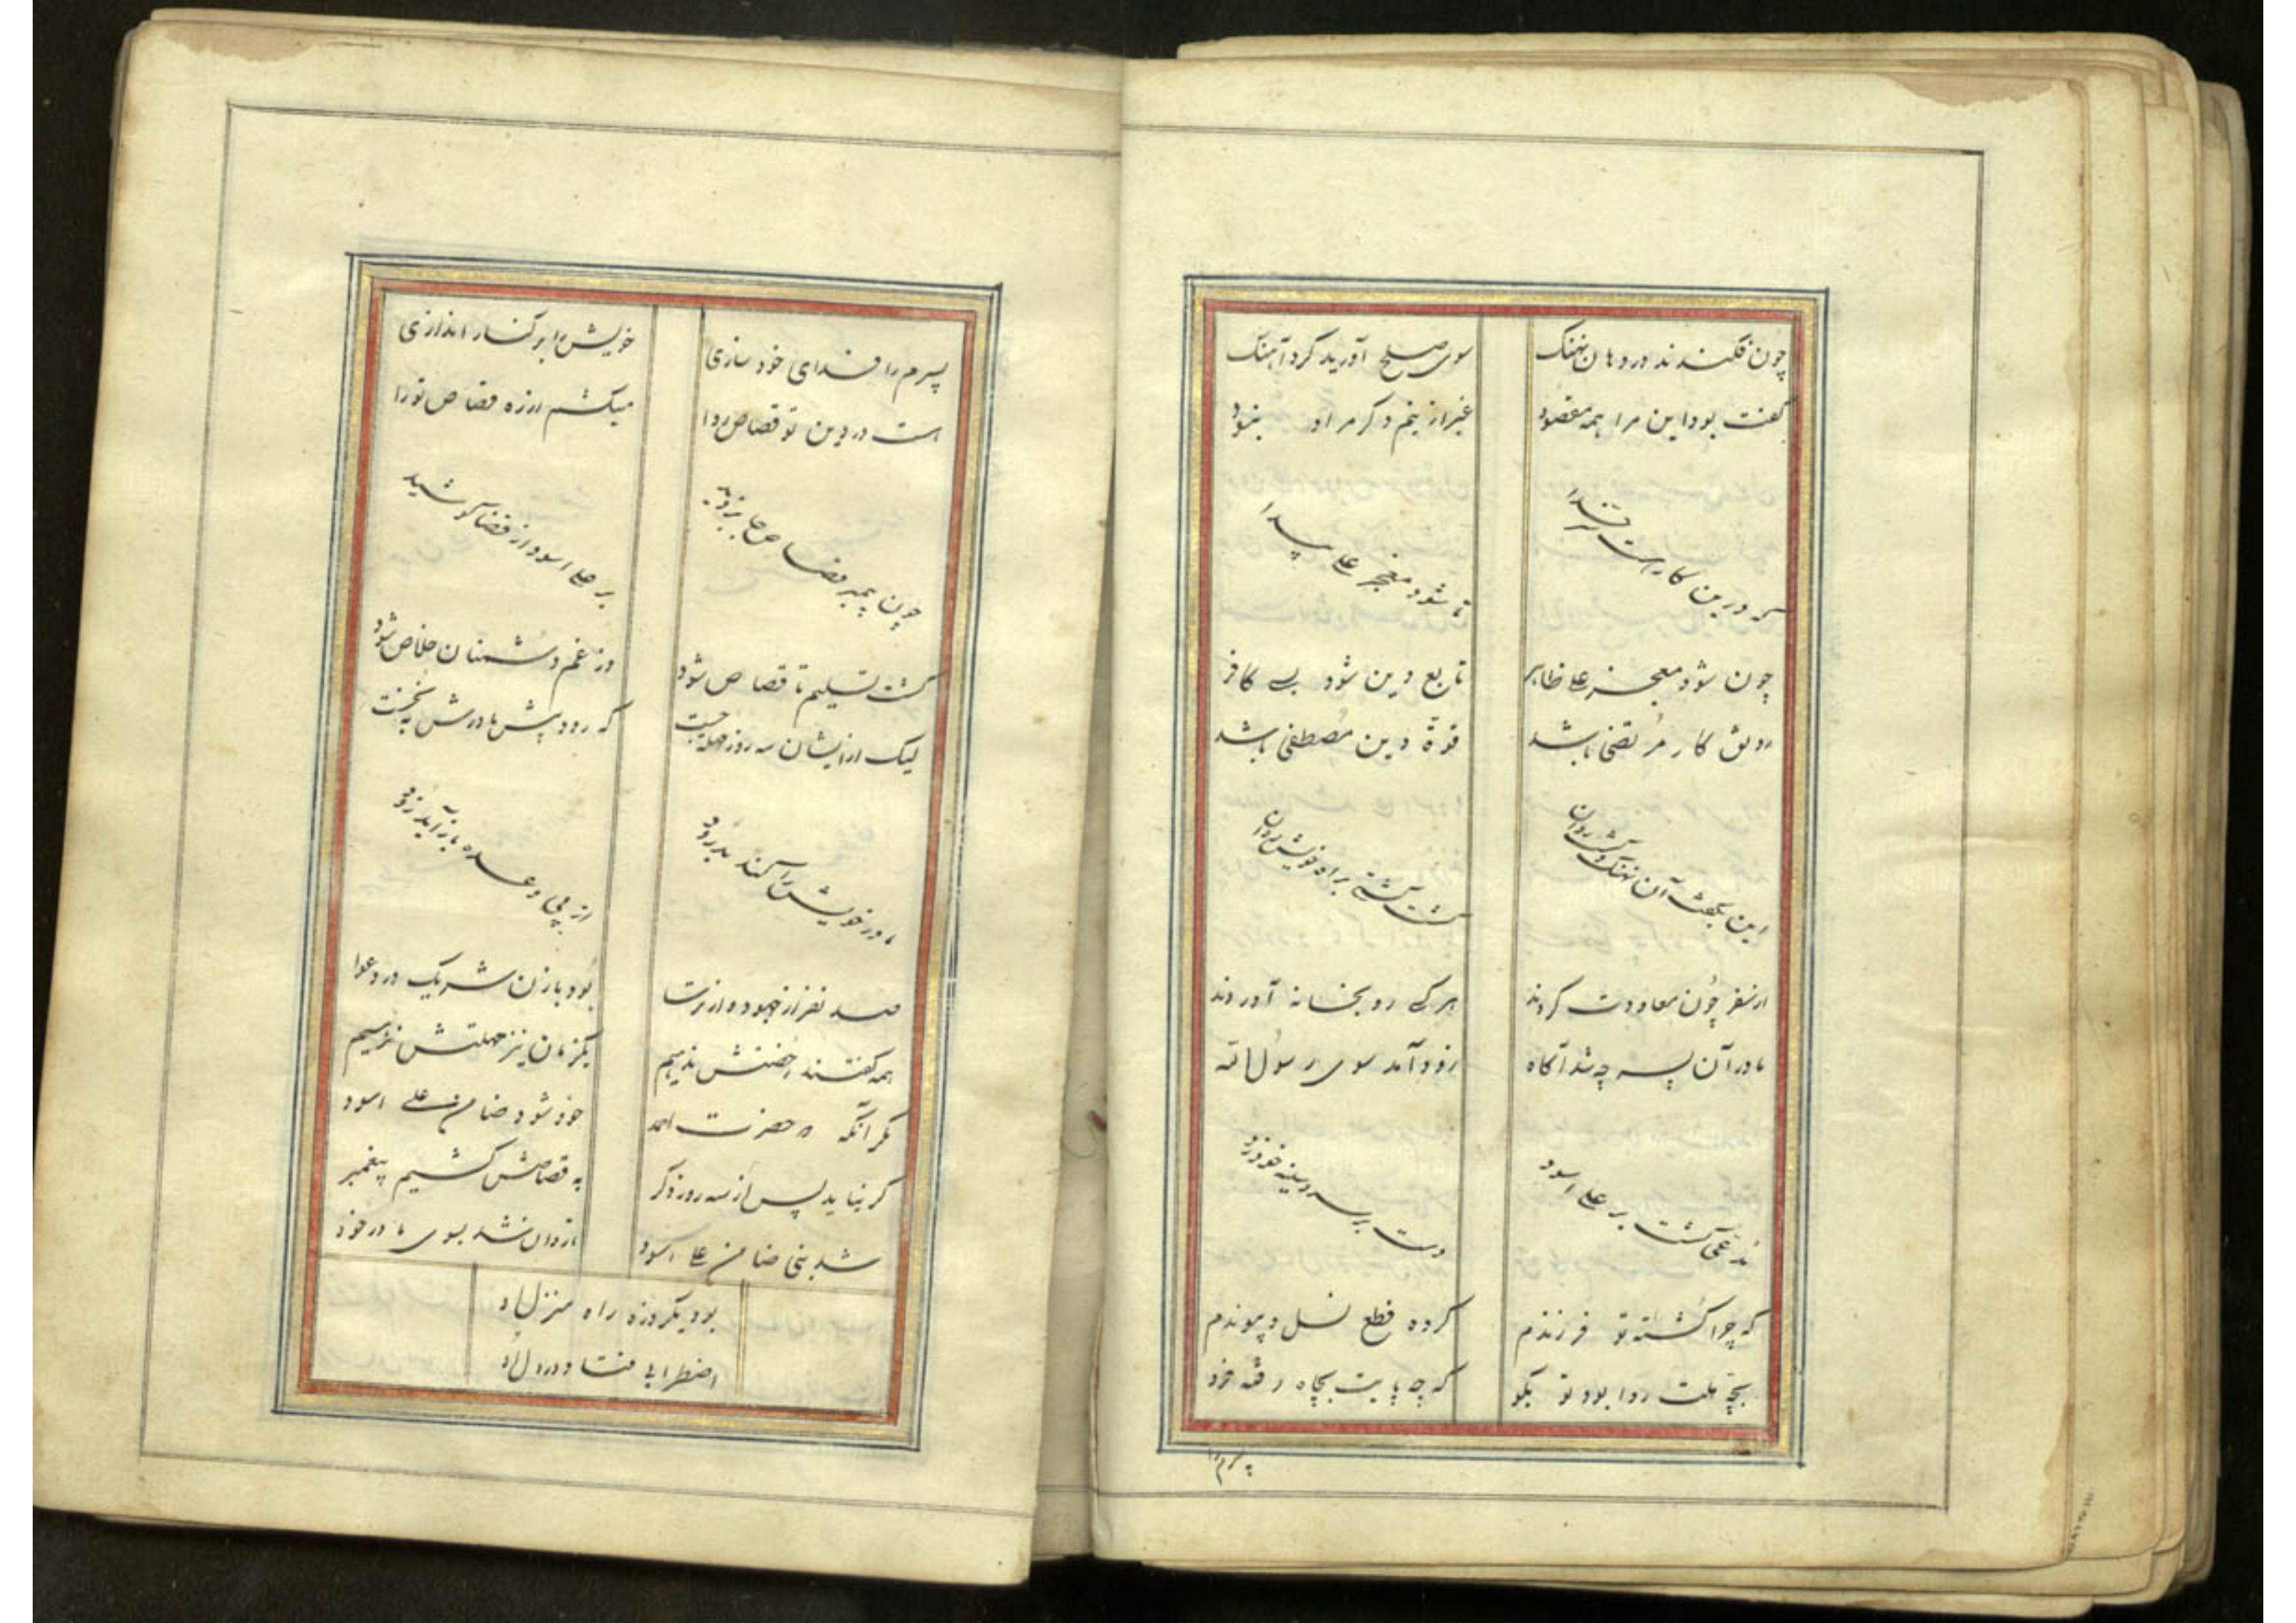 چون فکندند در دهان نهنگ سوی صلح آورید کرد آهنگ
گفت بود این مرا همه مقصود غیر ازینم دگر مراد نبود
که درین کار راست سر خدا تا شود معجز علی پیدا
چون شود معجز علی ظاهر تابع دین شود بسی کافر
رونق کار مرتضی باشد قوة دین مصطفی باشد
این بگفت آن نهنگ گشت روان گشت کشتی براه خویش روان
از سفر چون معاودت کردند هر کسی رو بخانه آوردند
مادر آن پسر چو شد آگاه زود آمد سوی رسول الله
مدعی گشت بر علی اسود دست بر سر و سینه خود زد
که چرا کشتهٔ تو فرزندم کردهٔ قطع نسل و پیوندم
بچه ملت روا بود تو بگو که چه پایت بچاه رفته فرو
پسرم را
پسرم را فدای خود سازی خویش را بر کنار اندازی
است در دین تو قصاص روا میکشم از ره قصاص تو را
چون پیمبر قصاص جایز دید بر علی اسود از قضا کوشید
گشت تسلیم تا قصاص شود وز غم دشمنان خلاص شود
لیک از ایشان سه روز مهلت جست که رود پیش مادرش به نخست
مادر خویش را کند بدرود از پی وعده باز آید زود
صد نفر از جهود و از ترسا بود با زن شریک در دعوا
همه گفتند رخصتش ندهیم یکزمان نیز مهلتش ندهیم
مگر آنکه حضرت احمد خود شود ضامن علی اسود
گر نیاید پس از سه روز دگر به قصاصش کشیم پیغمبر
شد نبی ضامن علی اسود تا روان شد بسوی مادر خود
بود یکروزه راه منزل او
اضطرابی فتاد در دل او